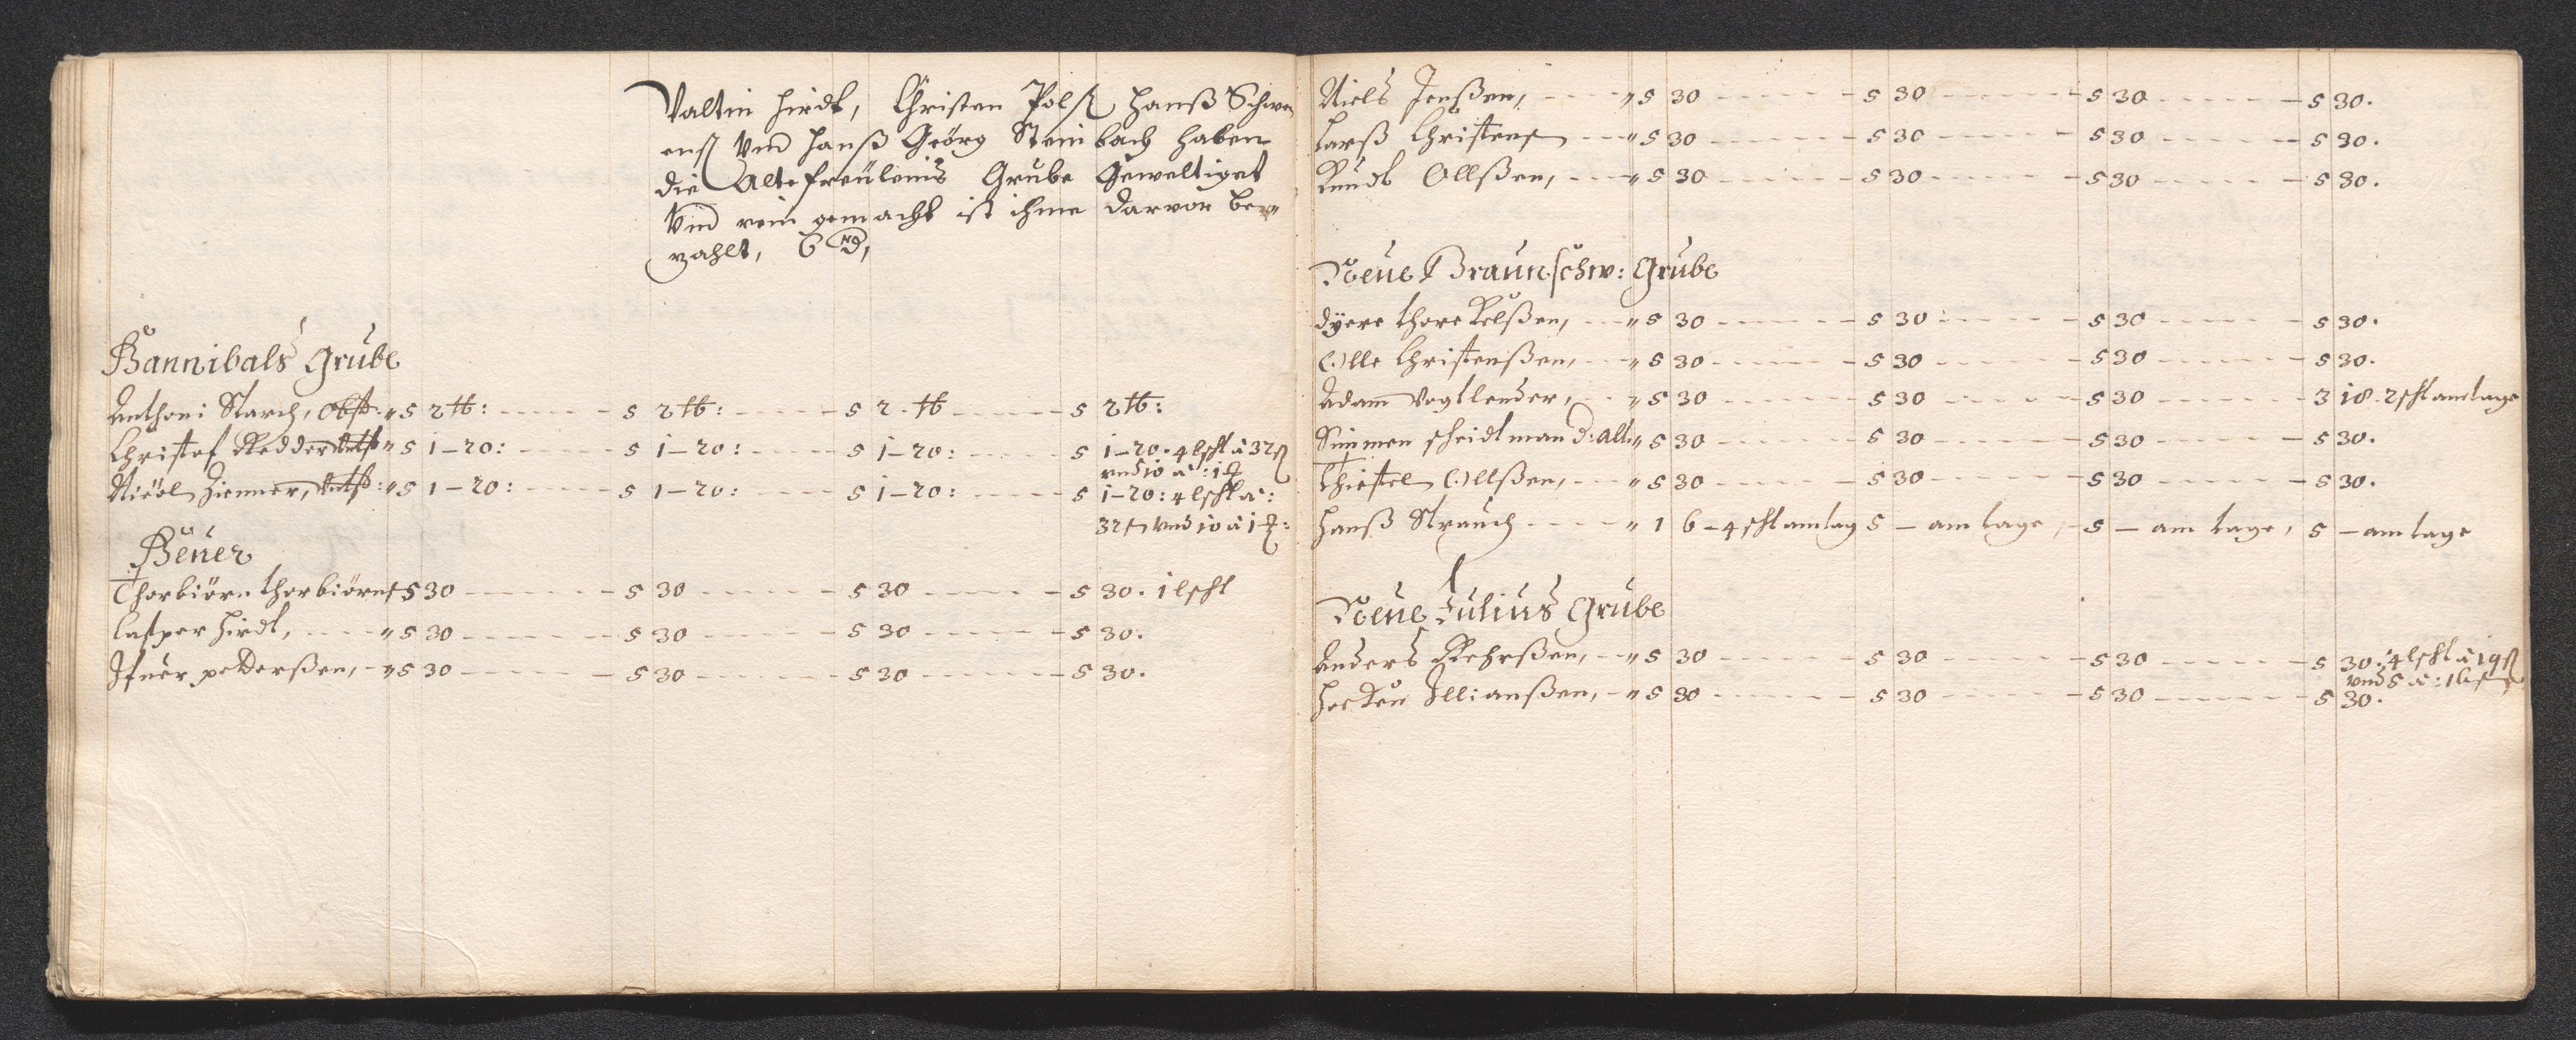 Valtin Hirdt, Christen Polß Hanß Schw
enß Und Hanß Geörg Steinbach haben
die Alte freüleins Grube Geweltiget
Und rein gemacht ist ihme darvor be
zahlt, 6
Hannibals Grube
Anthoni Starch, Obst " 5 2 tb: 5 2 tb: 5 2. tb 5 2 tb:
Christof Redder " 5 1-20: 5 1-20: 5 1-20: 5 1-20. 4 lscht à 32ß
und 10 a: 1
Nicol Ziemer, " 5 1-20: 5 1-20: 5 1-20: 5 1-20: 4 lscht a:
32ß Und 10 à 1
Heüer
Thorbiörn thorbiörns 5 30 5 30 5 30 5 30. 1 lscht
Casper Hirdt, " 5 30 5 30 5 30 5 30.
Ifuer pedersßen, " 5 30 5 30 5 30 5 30.
Niels Jenßen, " 5 30 5 30 5 30 5 30.
Larß Christens " 5 30 5 30 5 30 5 30.
Knudt Ollßen, " 5 30 5 30 5 30 5 30.
Neue Braunschw: Grube
dyere thorekelßen, " 5 30 5 30 5 30 5 30.
Olle Christenßen, " 5 30 5 30 5 30 5 30.
Adam Vogtlender, " 5 30 5 30 5 30 3 18. 2 scht am tage
Simmen scheidtman d: alt " 5 30 5 30 5 30 5 30.
Chistel Ollßen, " 5 30 5 30 5 30 5 30.
Hanß Strauch " 1 6 - 4 scht am tag 5 - am tage, 5 - am tage, 5 - am tage
Neue Julius Grube
Anders Rehrßen, " 5 30 5 30 5 30 5 30: 4 lscht à 19ß
und 5 a: 1
Herken Illianßen, " 5 30 5 30 5 30 5 30.